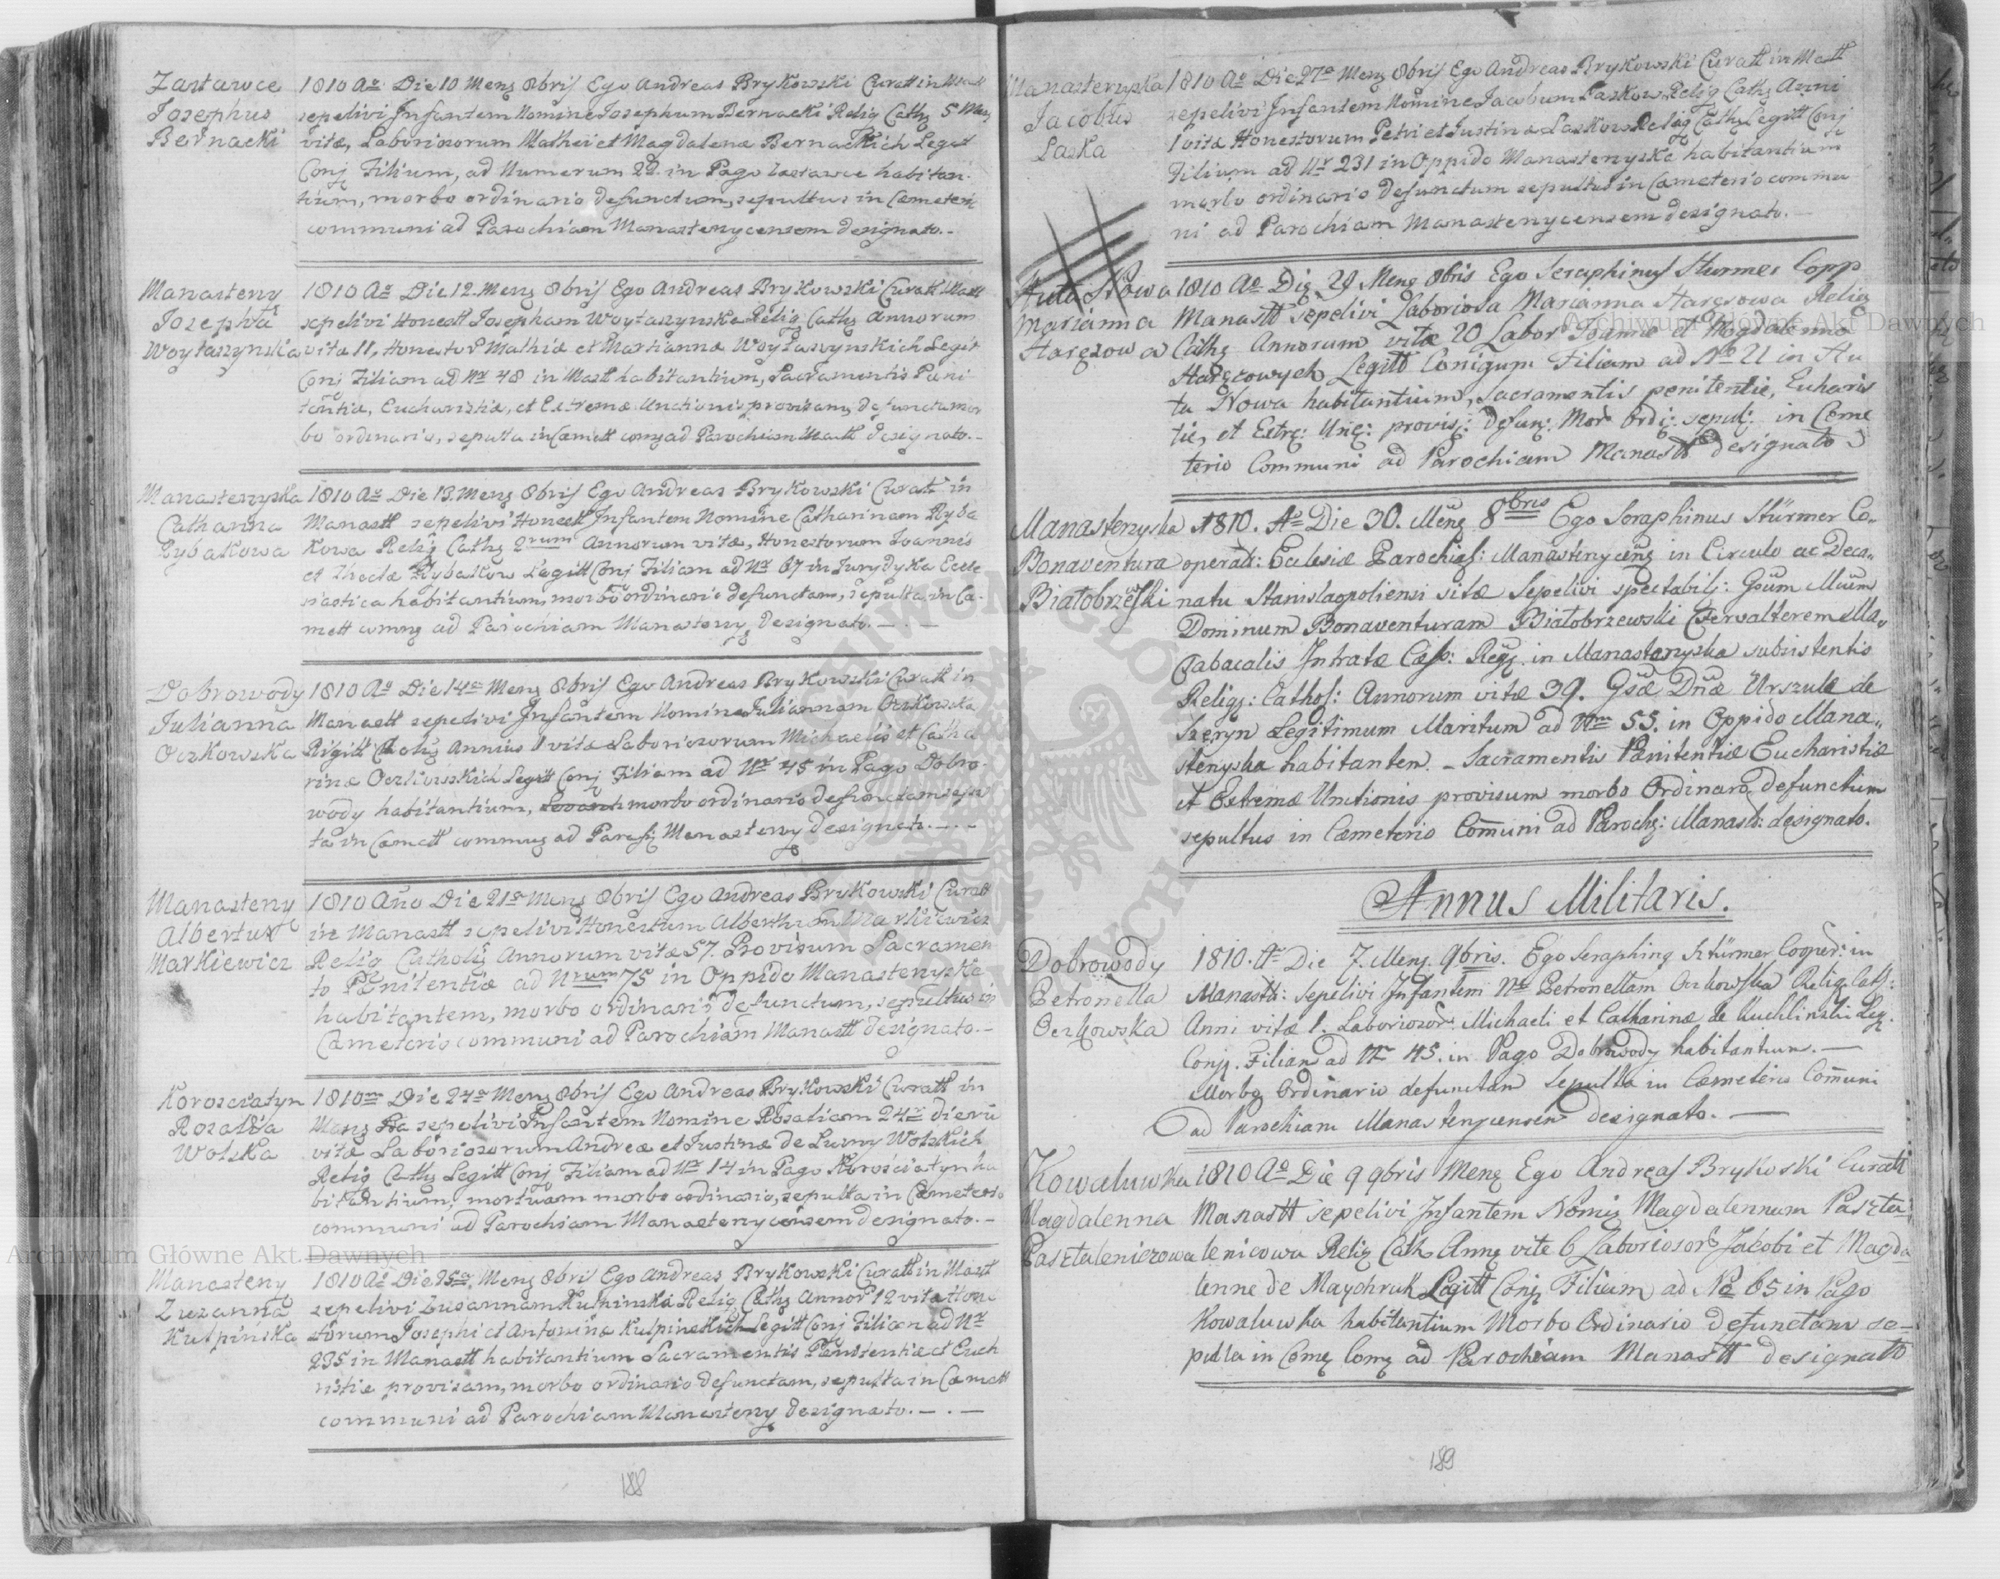 Zastawce
Josephus
Bernacki
1810 Ao Die 10 Mens 8bris Ego Andreas Brykowski Curatt in Mast
sepelivi Infantem Nomine Josephum Bernacki Relig Cath 5 Mens
vitæ, Laboriosorum Mathei et Magdalenæ Bernackich Legit
Conj Filium, ad Numerum 22. in Pago Zastawce habitan-
tium, morbo ordinario defunctum, sepultus in Cæmeteri
communi ad Parochiam Manastenycensem designato.-
Manasteny
Josepha
Woytaszynska
1810 Ao Die 12. Mens 8bris Ego Andreas Brykowski Curatt Mast
sepelivi Honest Josepham Woytaszynska Relig Cath Annorum
vitæ 11, Honestor Mathiæ et Mariannæ Woytaszynskich Legit
Conj Filiam ad Nr 48 in Mast habitantium, Sacramentis Pæni
tentiæ, Eucharistiæ, et Extremæ Unctionis provisam, defunctamor
bo ordinario, sepulta in Cæmett comg ad Parochiam Mastt designato.-
Manastenyska
Catharina
Rybakowa
1810 Ao Die 13. Mens 8bris Ego Andreas Brykowski Curatt in
Manastt sepelivi Honest Infantem Nomine Catharinam Ryba
kowa Relig Cath 2rum Annorum vitæ, Honestorum Joannis
et Theclæ Rybakow Legitt Conj Filiam ad Nr 67 in Jurydyka Eccle
siastica habitantium, morbo ordinario defunctam, sepulta in Cæ-
mett comng ad Parochiam Manasteny designato.-.-
Dobrowody
Julianna
Oczkowska
1810 Ao Die 14a Mens 8bris Ego Andreas Brykowski Curatt in
Manastt sepelivi Infantem Nomine Juliannam Oczkowska
Rigitt Catho Annius 1 vitæ Laboriosorum Michaelis et Catha
rinæ Oczkowskich Legitt Conj Filiam ad Nr 45 in Pago Dobro-
wody habitantium, morbo ordinario defunctam sepul
ta in Cæmett commug ad Paroch Manasteny designato.-.-
Manasteny
Albertus
Markiewicz
1810 Año Die 21a Mens 8bris Ego Andreas Brykowski Curatt
in Manastt sepelivi Honestum Albertum Markiewicz
Relig Catholi Annorum vitæ 57. Provisum Sacramen
to Pænitentiæ ad Nrum 75 in Oppido Manastenyska
habitantem, morbo ordinario defunctum, sepultus in
Cæmeterio communi ad Parochiam Manastt designato.-
Korosciatyn
Rosalia
Wolska
1810m Die 24a Mens 8bris Ego Andreas Brykowski Curatt in
Manas sepelivi Infantem Nomine Rosaliam 24r dierū
vitæ Laboriosorum Andreæ et Justinæ de Luzny Wolskich
Relig Cath Legitt Conj Filiam ad Nr 14 in Pago Korościatyn ha
bitantium, mortuam morbo ordinario, sepulta in Cæmeterio
communi ad Parochiam Manastenycensem designato.-
Manasteny
Zuzanna
Kulpińska
1810 Ao Die 25a. Mens 8bris Ego Andreas Brykowski Curatt in Mast
sepelivi Zusannam Kulpinska Relig Cath Annor 12 vitæ Hone
storum Josephi et Antoninæ Kulpinskich Legitt Conj Filiam ad Nr
235 in Manastt habitantium Sacramentis Pænitentiæ et Euch
ristiæ provisam, morbo ordinario defunctam, sepulta in Cæmett
communi ad Parochiam Manasteny designato.-.-
188
Manasteryska
Jacobus
Laska
1810 Ao Die 27a Mens 8bris Ego Andreas Brykowski Curatt in Mastt
sepelivi Infantem Nomine Jacobum Laskow Relig Cath Anni
1 vitæ Honestorum Petri et Justinæ Laskow Relig Cath Legitt Conj
Filium ad Nr 231 in Oppido Manastenyska habitantium
morbo ordinario defunctum sepultus in Cæmeterio commu
ni ad Parochiam Manastenycensem designato.-
Huta Nowa
Marianna
Haręzowa
1810 Ao Die 29 Mens 8bris Ego Seraphinus Sturmer Copp
Manastt sepelivi Laboriosa Marianna Haręsowa Relig
Cath Annorum vitæ 20 Labor Joannæ et Magdalenna
Haręcowych Legitt Conigum Filiam ad No 21 in Hu
ta Nowa habitantium, Sacramentis penitentie, Eucharis
tie, et Extre: Unc: provis: defunc: Mor Ordi: sepul: in Ceme
terio Communi ad Parochiam Manastt designato
Manastenyska
Bonaventura
Białobrzeski
1810. Ao Die 30. Mens 8bris Ego Seraphinus Stürmer Co-
operatt: Ecclesiæ Parochial: Manastenycens in Circulo ac Deca-
natu Stanislaopoliensi sitæ Sepelivi spectabili: Gsūm Mūm
Dominum Bonaventuram Białobrzewski Verwalterem
Tabacalis Intratæ Cæs: Reg: in Manastenyska subsistentis
Relig: Cathol: Annorum vitæ 39. Gsæ Dnæ Urszulæ de
Szeryn Legitimum Maritum ad Nrm 55. in Oppido Mana-
stenyska habitanten. - Sacramentis Pænitentiæ Eucharistiæ
et Extremæ Unctionis provisum morbo Ordinaro, defunctum
sepultus in Cæmeterio Com̄uni ad Paroch: Manast: designato.
Annus Militaris.
Dobrowody
Petronella
Oczkowska
1810. Ao Die 7. Mens. 9bris. Ego Seraphing Stürmer Cooper: in
Manastt: sepelivi Infantem Ne Petronellam Oczkowska Relig. Cath:
Anni vitæ 1. Laboriosor: Michaeli et Catharinæ de Kuchlinski Leg.
Conj. Filiam ad Nr 45. in Pago Dobrowody habitantium.-
Morbo Ordinario defunctam Sepulta in Cæmeterio Com̄uni
ad Parochiam Manastenycensem designato.-
Kowaluwka
Magdalenna
Pasztalenicowa
1810 Ao Die 9 9bris Mens Ego Andreas Brykoski Curatt
Manastt sepelivi Infantem Nomig Magdalennum Paszta-
lenicowa Relig Cath Anng vite 6 Laboriosor Jakobi et Magda
lenne de Maychruk Legitt Conj Filium ad No 65 in Pago
Kowaluwka habitantium Morbo Ordinario defunctam se-
pulla in Comg Comg ad Parochiam Manastt designato
189
Archiwum Główne Akt Dawnych
Archiwum Główne Akt Dawnych